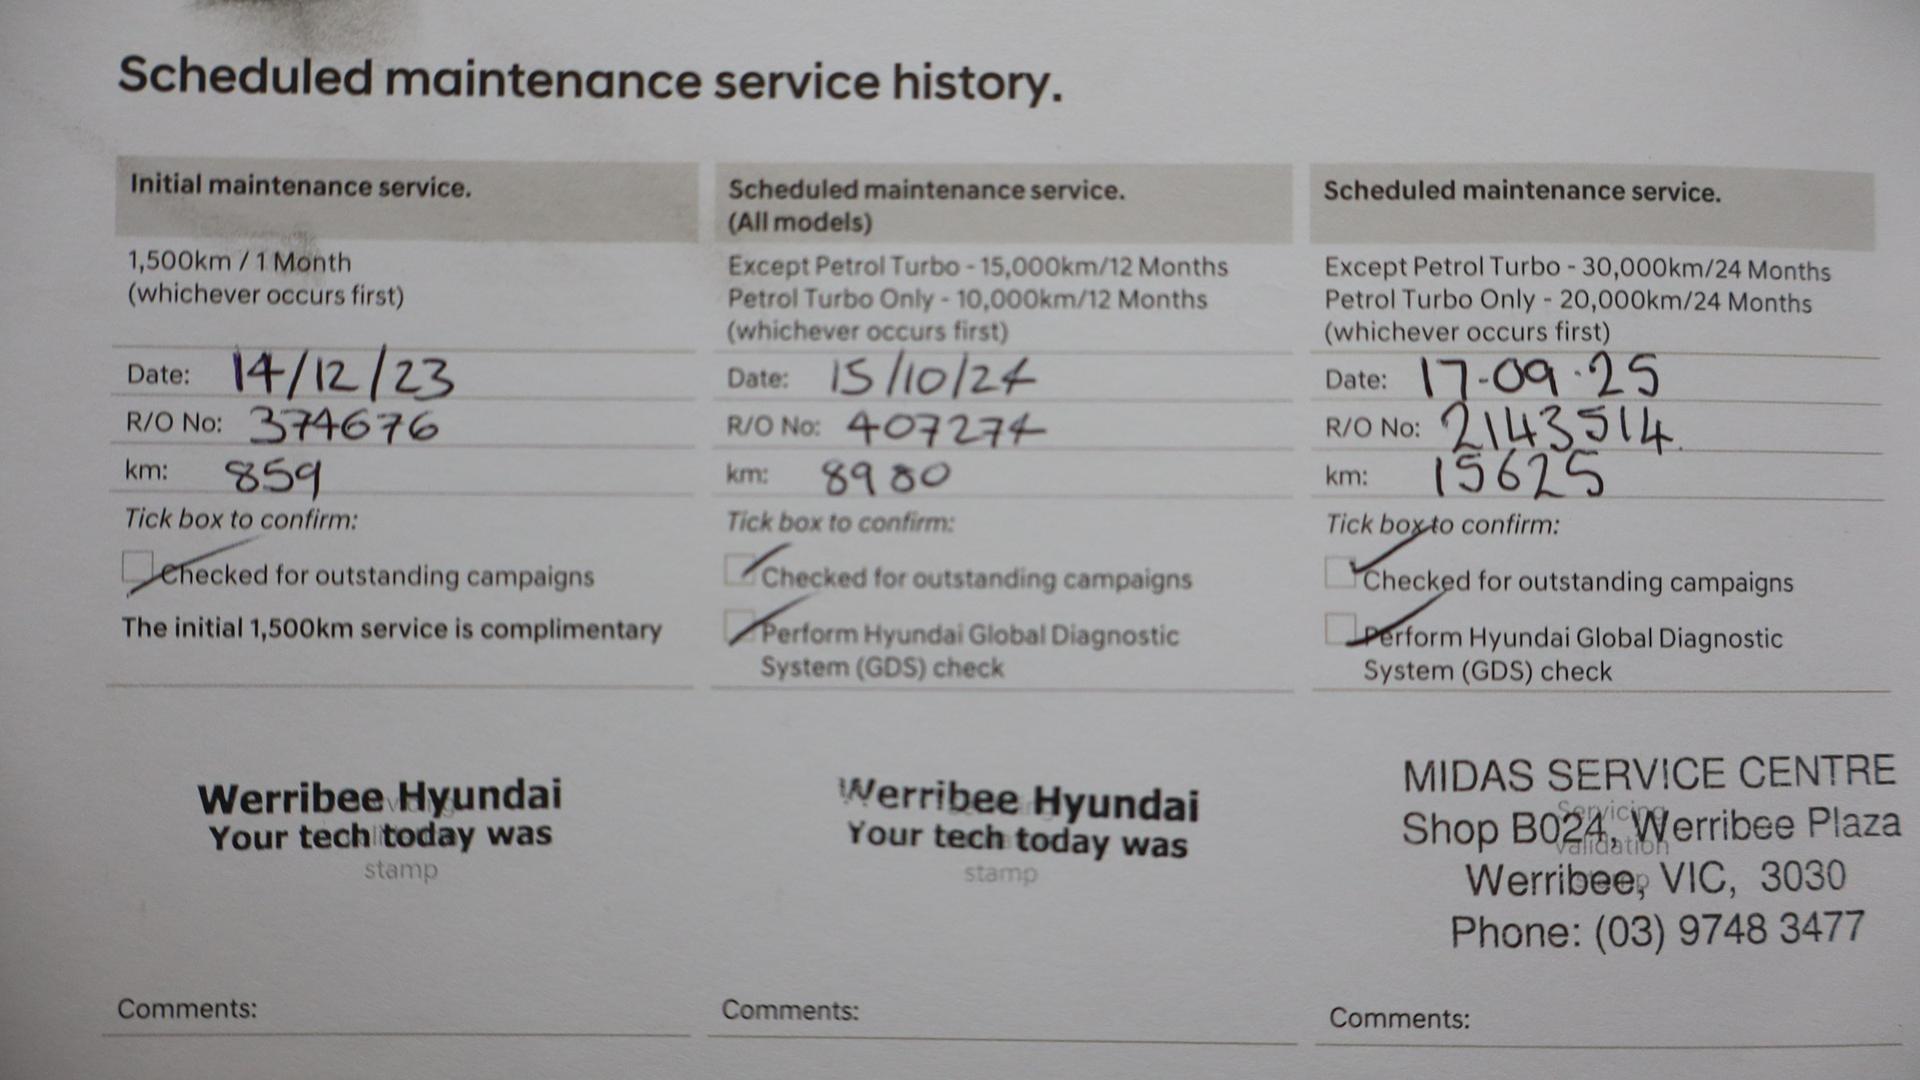 Scheduled maintenance service history.
Initial maintenance service.
1,500km / 1 Month
(whichever occurs first)
Date: 14/12/23
R/O No: 374676
km: 859
Tick box to confirm:
Checked for outstanding campaigns
The initial 1,500km service is complimentary
Werribee Hyundai
Your tech today was
stamp
Comments:
Scheduled maintenance service.
(All models)
Except Petrol Turbo - 15,000km/12 Months
Petrol Turbo Only - 10,000km/12 Months
(whichever occurs first)
Date: 15/10/24
R/O No: 407274
km: 8980
Tick box to confirm:
Checked for outstanding campaigns
Perform Hyundai Global Diagnostic
System (GDS) check
Werribee Hyundai
Your tech today was
stamp
Comments:
Scheduled maintenance service.
Except Petrol Turbo - 30,000km/24 Months
Petrol Turbo Only - 20,000km/24 Months
(whichever occurs first)
Date: 17-09-25
R/O No: 2143514
km: 15625
Tick box to confirm:
Checked for outstanding campaigns
Perform Hyundai Global Diagnostic
System (GDS) check
MIDAS SERVICE CENTRE
Servicing
Shop B024, Werribee Plaza
validation
Werribee, VIC, 3030
Phone: (03) 9748 3477
Comments: